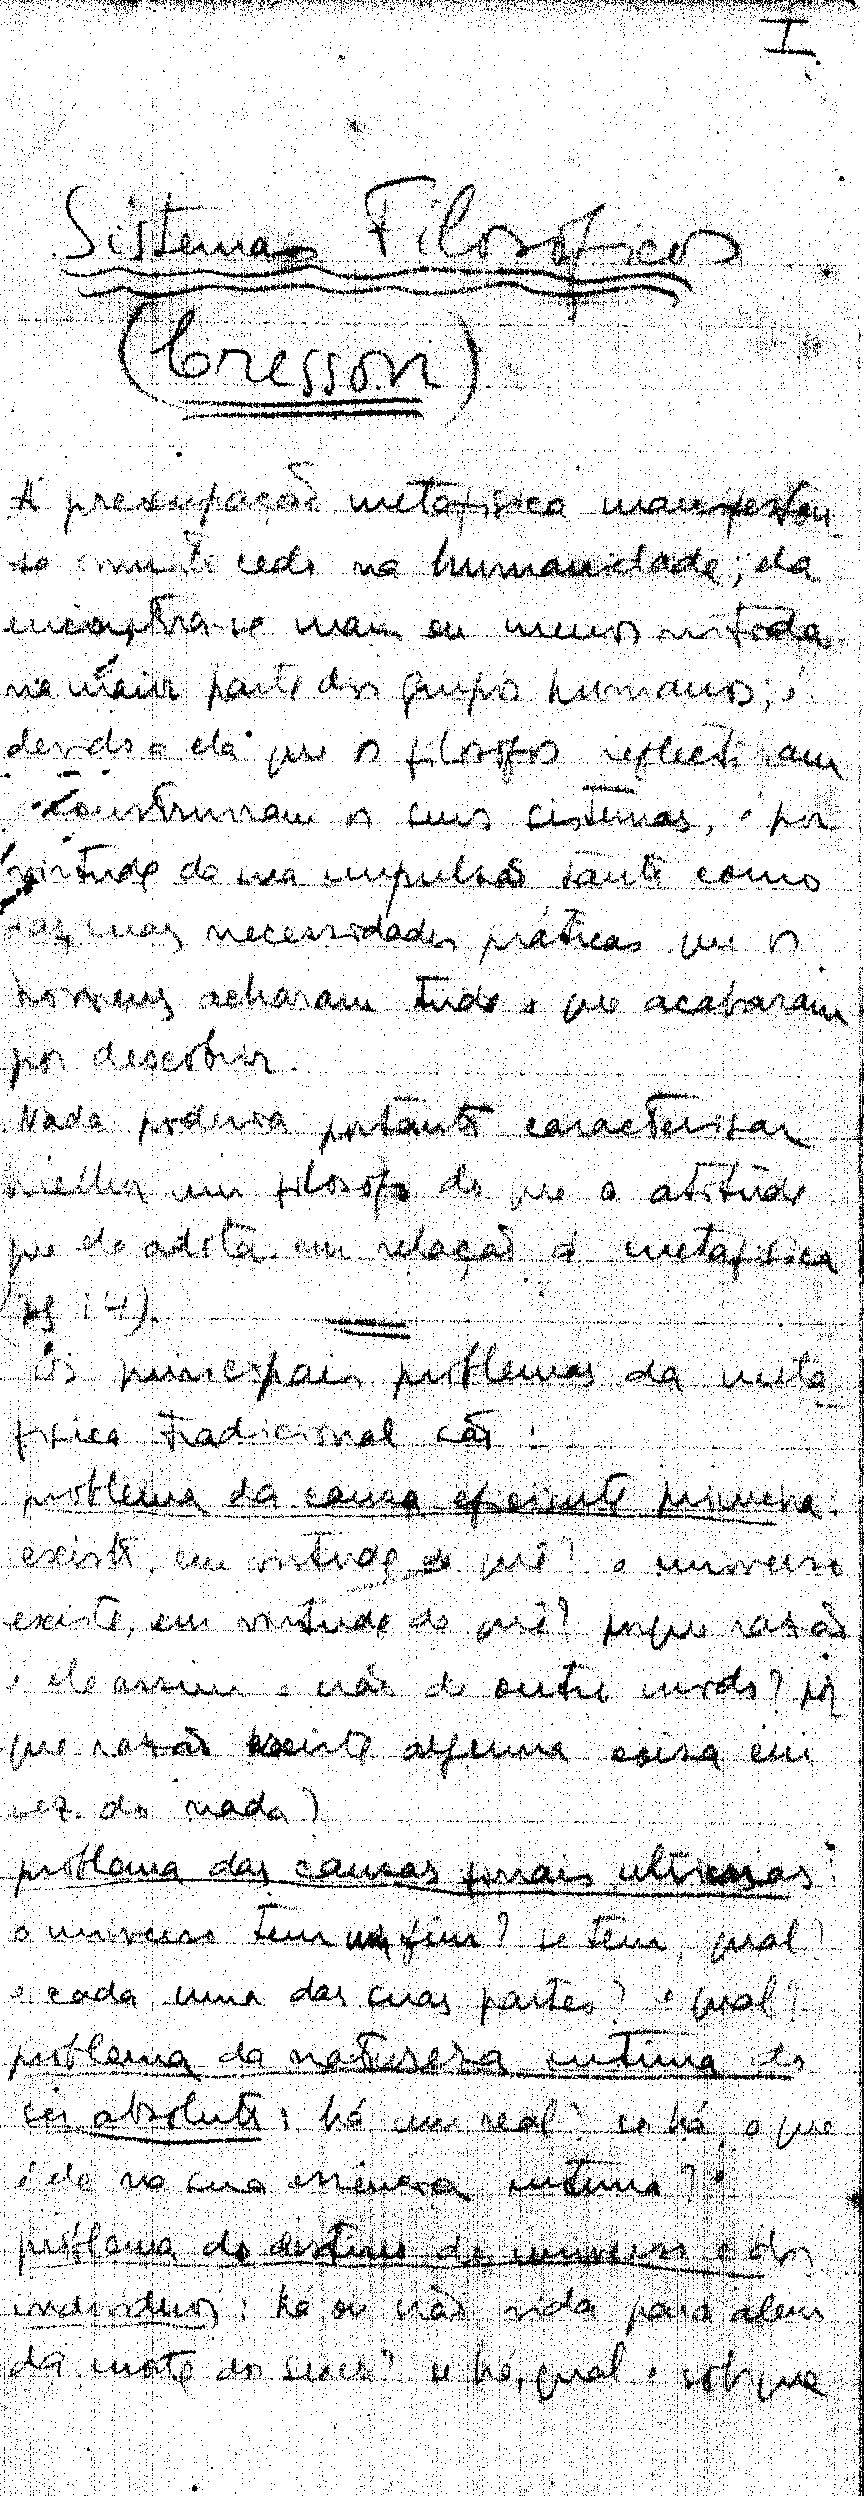 I
Sistemas Filosóficos
(Cresson)
A preocupação metafísica manifestou-
se muito cedo na humanidade; ela
encontra-se mais ou menos nítida
na maior parte dos grupos humanos; é
devido a ela que os filósofos reflectiram
e construiram os seus sistemas, é por
virtude da sua impulsão tanto como
das suas necessidades práticas que os
homens acharam tudo o que acabaram
por descobrir.
Nada poderia portanto caracterizar
melhor um filósofo do que a atitude
que ele adota em relação à metafísica
Os principais problemas da meta
física tradicional são:
problema da causa eficiente primeira:
existe, em virtude de quê? o universo
existe, em virtude de quê? porque razão
é ele assim e não de outro modo? por
que razão existe alguma coisa em
vez do nada?
problema das causas finais ultimas:
o universo tem um fim? se tem, qual?
e cada uma das suas partes? e qual?
problema da natureza intima do
ser absoluto: há um real? se há, o que
é ele na sua essencia interna?
problema do destino do universo e dos
individuos: há ou não vida para alem
da morte dos seres? se há, qual e sob que